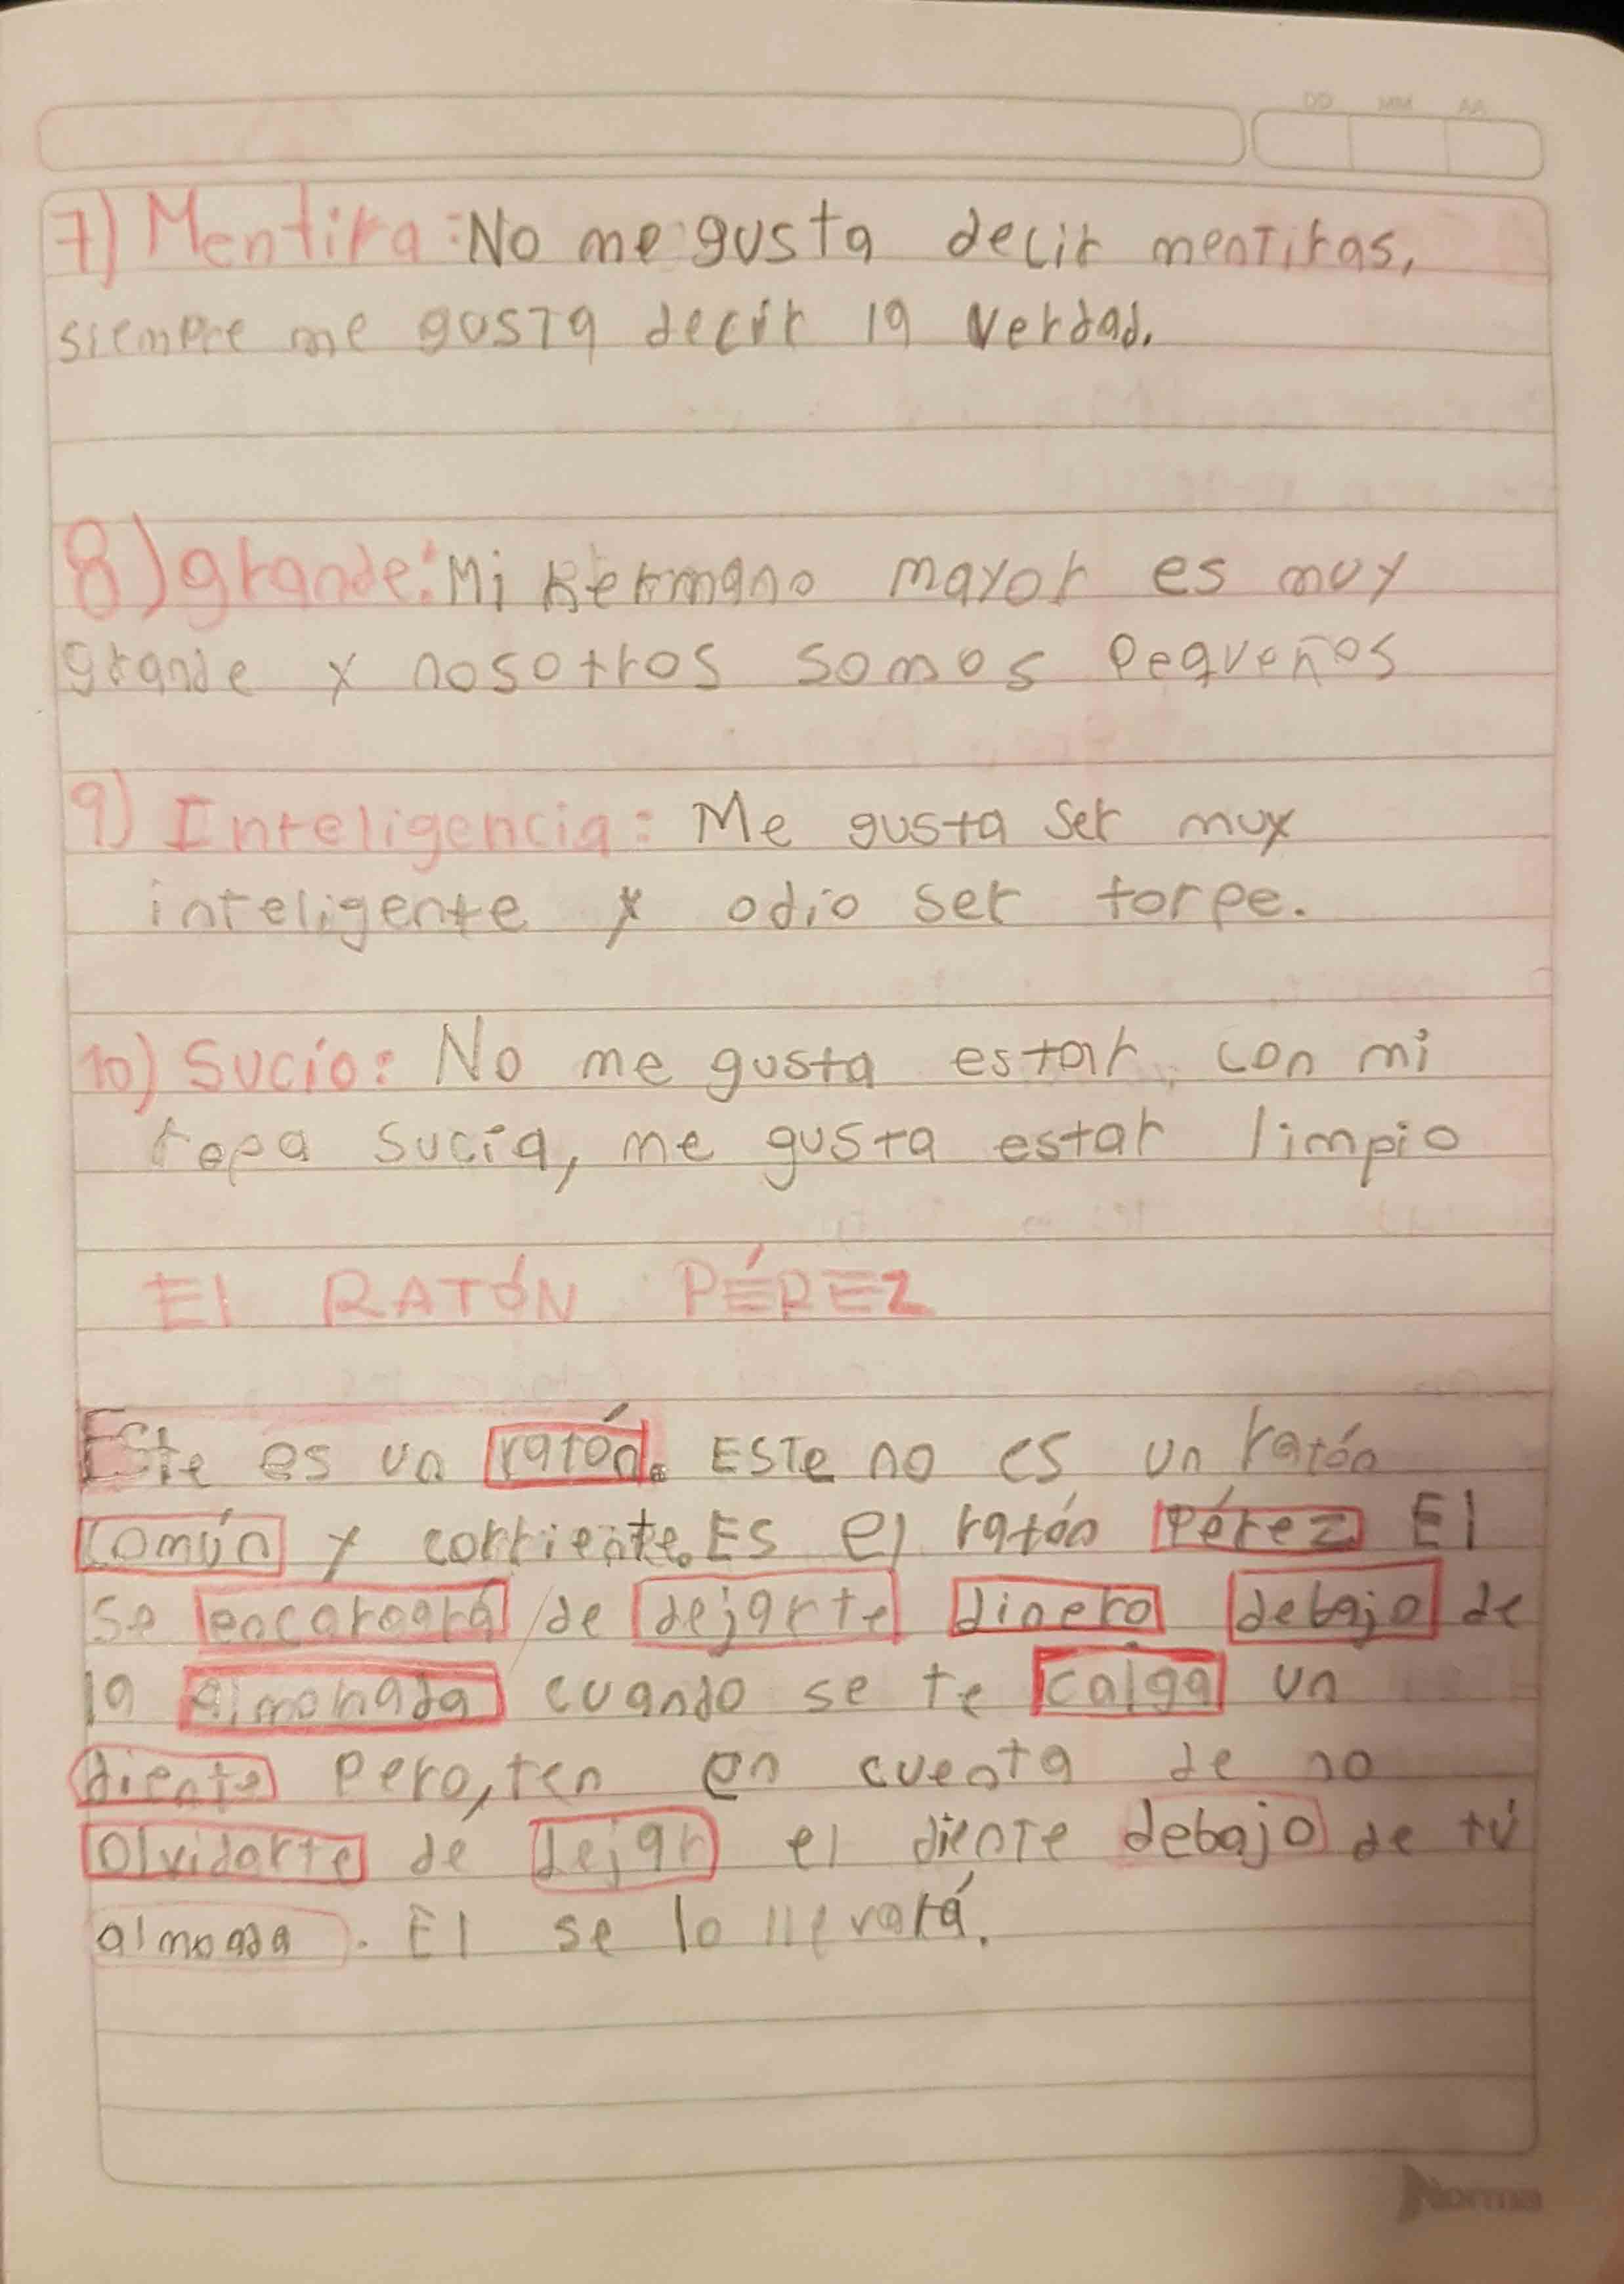 DD MM AA
7) Mentira: No me gusta decir mentiras,
siempre me gusta decir la verdad.
8) grande: Mi hermano mayor es muy
grande y nosotros somos pequeños
9) Inteligencia: Me gusta ser muy
inteligente y odio ser torpe.
10) Sucio: No me gusta estar, con mi
ropa sucia, me gusta estar limpio
El RATÓN PÉREZ
Este es un ratón. Este no es un ratón
común y corriente. Es el ratón Pérez El
se encargará de dejarte dinero debajo de
la almohada cuando se te caiga un
diente pero, ten en cuenta de no
olvidarte de dejar el diente debajo de tú
almoada. El se lo llevará.
Norma